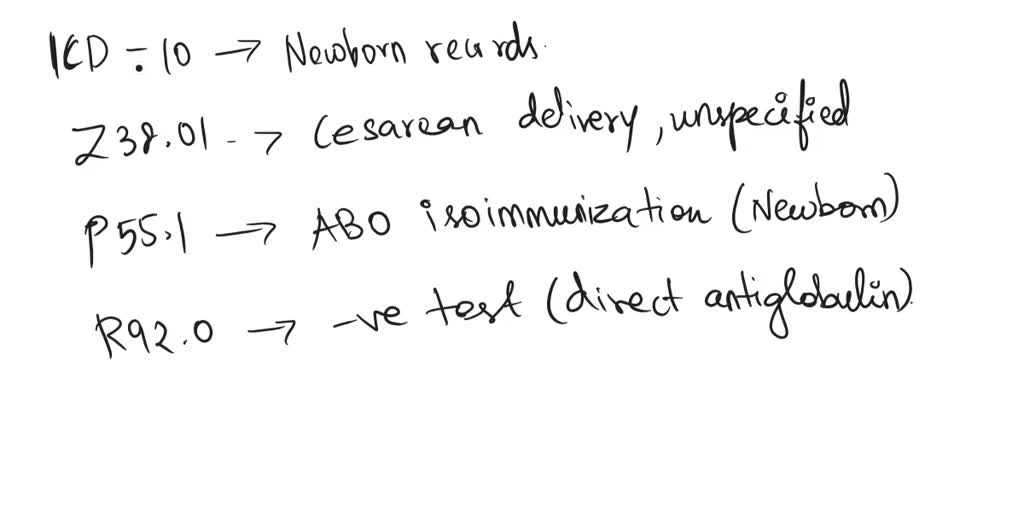 ICD-10 → Newborn records.
Z38.01 → Cesarean delivery, unspecified
P55.1 → ABO isoimmunization (Newborn)
R92.0 → -ve test (direct antiglobulin)